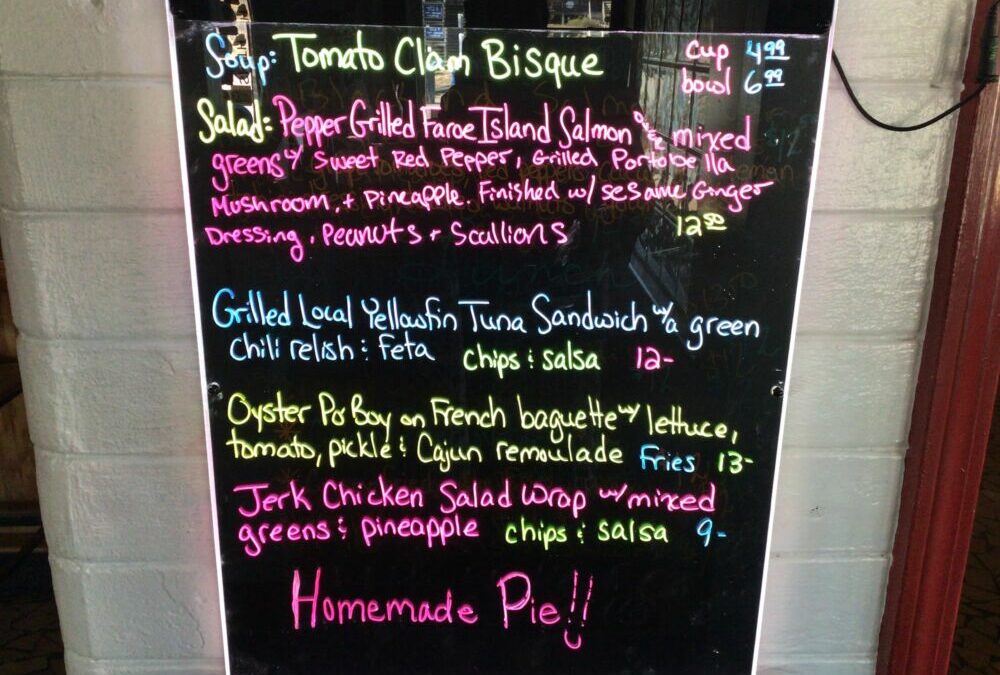 Soup: Tomato Clam Bisque cup 4.99
bowl 6.99
Salad: Pepper Grilled Faroe Island Salmon over mixed
greens w/ Sweet Red Pepper, Grilled Portobella
Mushroom, + Pineapple. Finished w/ sesame Ginger
Dressing, Peanuts + Scallions 12.50
Grilled Local Yellowfin Tuna Sandwich w/ a green
chili relish & feta chips & salsa 12-
Oyster Po Boy on French baguette w/ lettuce,
tomato, pickle & Cajun remoulade Fries 13-
Jerk Chicken Salad Wrap w/ mixed
greens & pineapple chips & salsa 9-
Homemade Pie!!